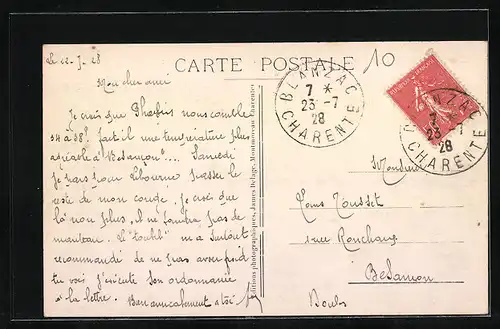 le 22-7-28
CARTE POSTALE
10
Mon cher ami
Je crois que Phébus nous comble
34 à 38° fait il une température plus
agréable à Besançon".... Samedi
je pars pour Libourne passer le
reste de mon congé. Je crois que
là non plus, il ne faudra pas de
manteau. Le "toubib" m'a surtout
recommandé de ne pas avoir froid
tu vois j'exécute son ordonnance
à la lettre. Bien amicalement à toi
Editions photographiques, James Delage, Montmoreau (Charente)
BLANZAC
7 *
23 -7
28
CHARENTE
BLANZAC
7
23 -7
28
CHARENTE
Monsieur
Louis Tousset
rue Ronchaux
Besançon
Doubs